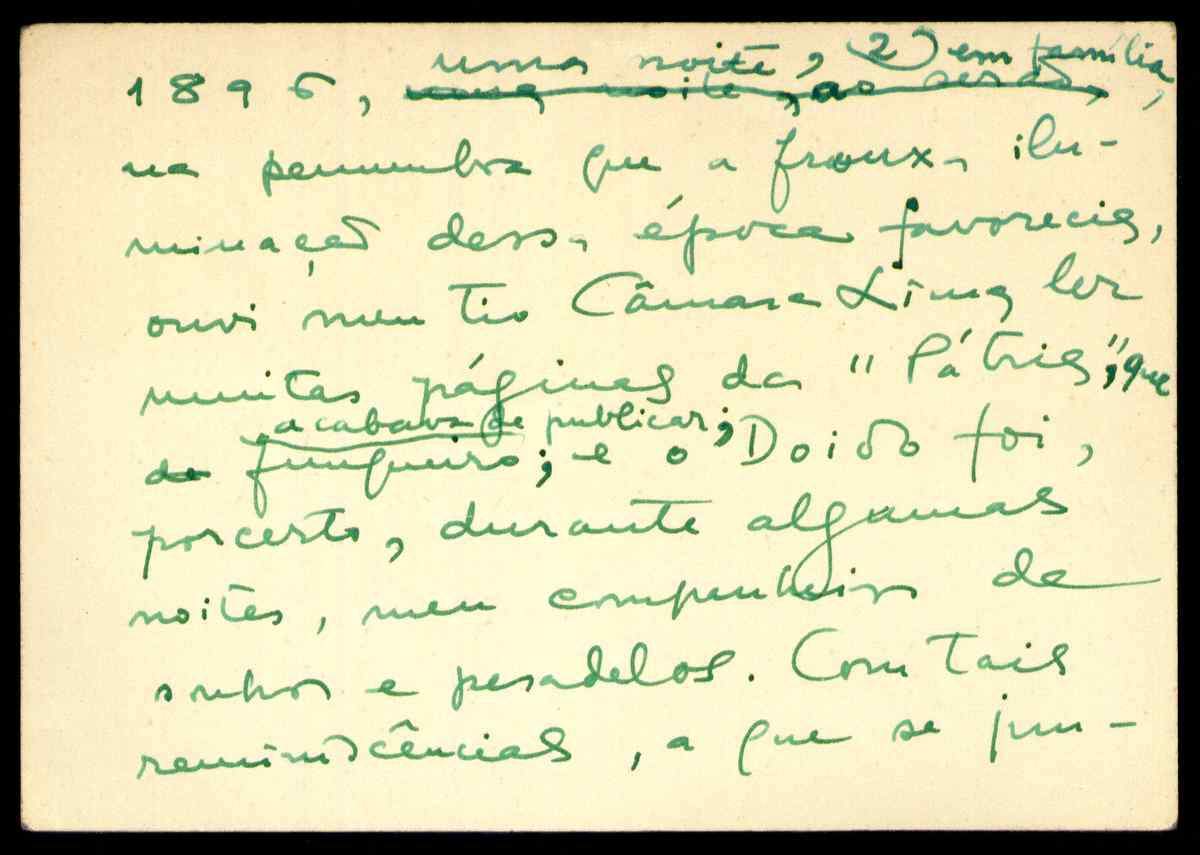 uma noite, (2) em família,
1896, numa noite, ao serão,
na penumbra que a frouxa ilu-
minação dessa época favorecia,
ouvi meu tio Câmara Lima ler
muitas páginas da "Pátria", que
acabava de publicar;
de Junqueiro; e o Doido foi,
porcerto, durante algumas
noites, meu companheiro de
sonhos e pesadelos. Com tais
reminiscências, a que se jun-